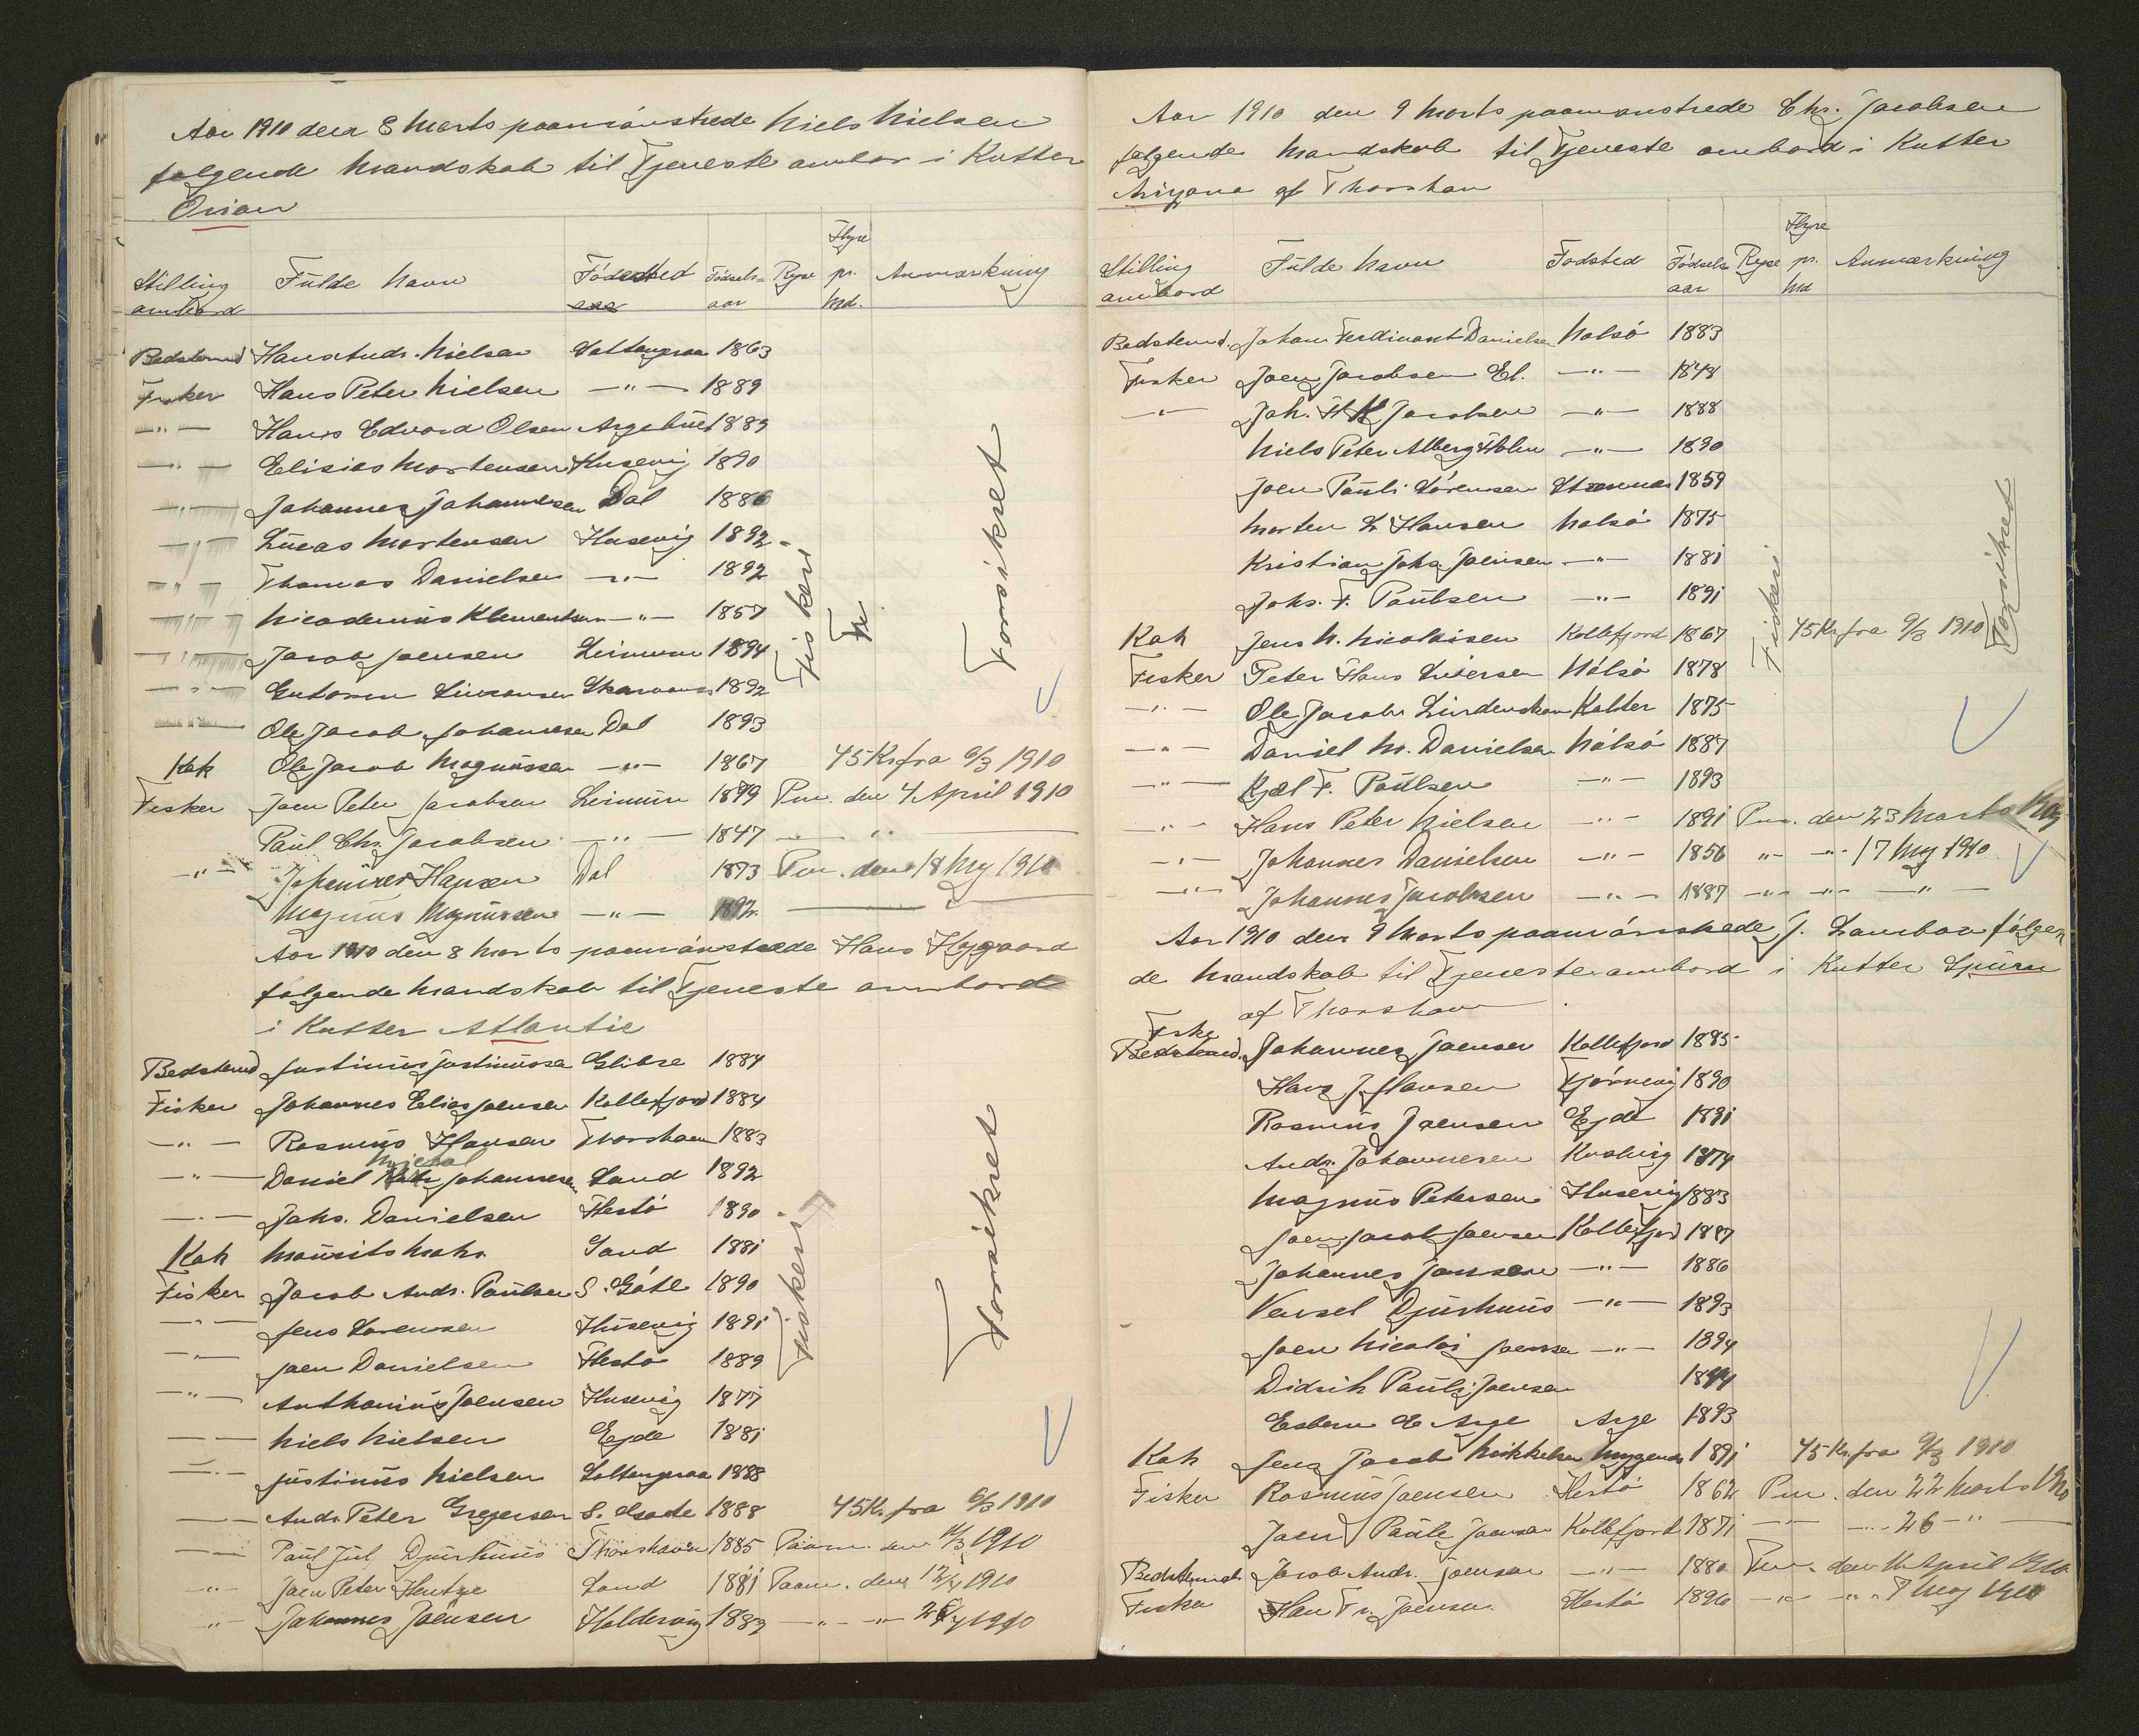 Aar 1910 den 8 Marts paamönstrede Niels Nielsen
følgende Mandskab til Tjeneste ombor i Kutter
Orion
Stilling ombord Fulde Navn Födested Födsels-aar Rejse Hyre pr. Md. Anmærkning
Bedstemd Hans Andr. Nielsen 1863
Fisker Hans Peter Nielsen —"— 1889
—"— Hans Edvard Olsen 1889
—"— Elisias Mortensen Husevig 1890
—"— Johannes Johannesen Dal 1886
—"— Lucas Mortensen Husevig 1892
—"— Thomas Danielsen —"— 1892
—"— Nicodemus Klementsen —"— 1857
—"— Jacob Joensen 1894
—"— 1892
—"— Ole Jacob Johannesen Dal 1893
Kok Ole Jacob Magnussen —"— 1867 45 Kr fra 6/3 1910
Fisker Joen Peter Jacobsen 1879 Pm. den 4 April 1910
Paul Chr. Jacobsen —"— 1847 — " —
—"— Johannes Hansen Dal 1873 Pm. den 18 Maj 1910
Magnus Magnussen —"— 1892
Fiskeri
Forsikret
Aar 1910 den 8 Marts paamönstrede Hans Højgaard
følgende Mandskab til Tjeneste ombord
i Kutter Atlantic
Bedstemd Justinus Justinussen Glibre 1884
Fisker Johannes Elias Joensen Kollefjord 1884
—"— Rasmus Hansen Thorshavn 1883
—"— Daniel Johannesen Sand 1892
—"— Johs. Danielsen Hestö 1890
Kok Maurits Mohr Sand 1881
Fisker Jacob Andr. Paulsen S. Göte 1890
—"— Jens Sorensen Husevig 1891
—"— Joen Danielsen Hestö 1889
—"— Anthonius Joensen Husevig 1877
—"— Niels Nielsen Ejde 1881
—"— Justinus Nielsen 1888
—"— Andr. Peter Gregersen 1888 45 Kr. fra 6/3 1910
—"— Paul Jul. Djurhuus Thorshavn 1885 Paam. den 1910
—"— Joen Peter Hentze Sand 1881 Paam. den 12/4 1910
—"— Johannes Joensen 1883 —"— 1910
Fiskeri
Forsikret
Aar 1910 den 9 Marts paamönstrede Chr. Jacobsen
følgende Mandskab til Tjeneste ombord i Kutter
af Thorshavn
Stilling ombord Fulde Navn Fodsted Födsels aar Rejse Hyre pr. Md Anmærkning
Bedstemd. Johan Ferdinant Danielsen Nolsö 1883
Fisker Joen Jacobsen El. —"— 1848
—"— Joh. H. Jacobsen —"— 1888
Niels Peter Alberg Holm —"— 1890
Joen Pauli Sörensen 1859
Morten S. Hansen Nolsö 1875
Kristian Johs Joensen —"— 1881
Johs. F. Poulsen —"— 1891
Kok Jens N. Nicolaisen Kollefjord 1867 45 Kr fra 9/3 1910
Fisker Peter Hans Nölsö 1878
—"— Ole Jacob Lindenskov Kalter 1875
—"— Daniel M. Danielsen Nölsö 1887
—"— Kjæl F. Poulsen —"— 1893
—"— Hans Peter Nielsen —"— 1891 Pm. den 23 Marts
—"— Johannes Danielsen —"— 1856 " —"— 17 Maj 1910
—"— Johannes Jacobsen —"— 1887 —"— —"— —"—
Fiskeri
Forsikret
Aar 1910 den 9 Marts paamönstrede J. følgen
de Mandskab til Tjeneste ombord i Kutter Spurn
af Thorshavn
Fisker
Bedstemd. Johannes Joensen Kollefjord 1885
Hans J. Hansen Tjörnevig 1890
Rasmus Joensen Ejde 1891
Andr. Johannesen 1874
Magnus Petersen Husevig 1883
Joen Jacob Joensen Kollefjord 1887
Johannes Jonsen —"— 1886
Djurhuus —"— 1893
Joen Nicolai Joensen —"— 1894
Didrik Pauli Joensen 1894
Esbern E Arge Arge 1893
Kok Jens Jacob Mikkelsen Mygenæs 1891 45 Kr. fra 9/3 1910
Fisker Rasmus Joensen Hestö 1862 Pm. den 22 Marts 1910
Joen Paule Joensen Kollefjord 1871 —"— 26 —"—
Bedstemd. Jacob Andr. Joensen —"— 1880 Pm. den April 1910
Fisker Joensen Hestö 1896 —"— —"— 7 Maj 1910